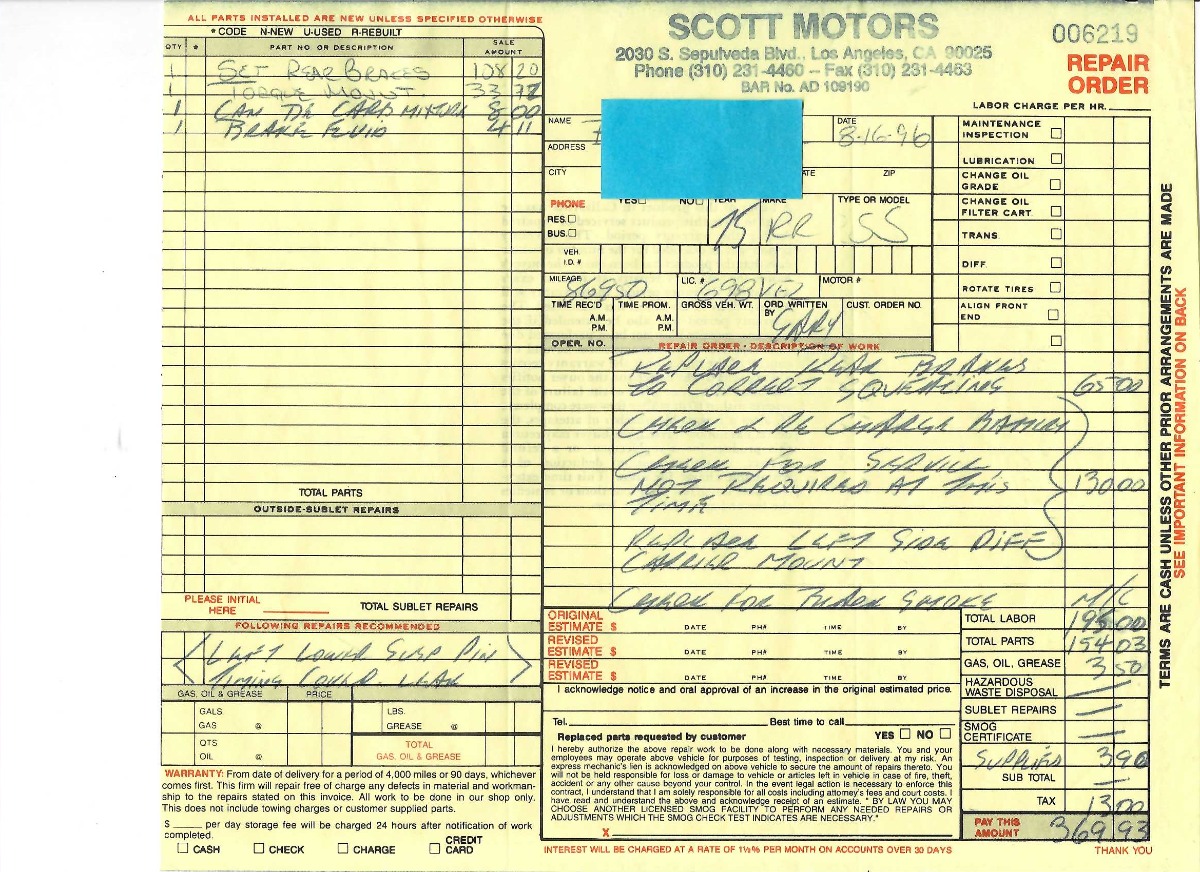 ALL PARTS INSTALLED ARE NEW UNLESS SPECIFIED OTHERWISE
*CODE N-NEW U-USED R-REBUILT
QTY * PART NO. OR DESCRIPTION SALE AMOUNT
1 SET REAR BRACES 108 20
1 TORQUE MOUNT. 33 72
1 CAN DR CARB MIXTURE 8 00
1 BRAKE FLUID 4 11
TOTAL PARTS
OUTSIDE-SUBLET REPAIRS
PLEASE INITIAL
HERE
TOTAL SUBLET REPAIRS
FOLLOWING REPAIRS RECOMMENDED
LEFT LOWER SUSP PIN
TIMING COVER LEAK
GAS, OIL & GREASE PRICE
GALS. GAS @
LBS. GREASE @
QTS OIL @
TOTAL GAS, OIL & GREASE
WARRANTY: From date of delivery for a period of 4,000 miles or 90 days, whichever
comes first. This firm will repair free of charge any defects in material and workman-
ship to the repairs stated on this invoice. All work to be done in our shop only.
This does not include towing charges or customer supplied parts.
$ per day storage fee will be charged 24 hours after notification of work
completed.
CASH CHECK CHARGE CREDIT CARD
SCOTT MOTORS
2030 S. Sepulveda Blvd., Los Angeles, CA 90025
Phone (310) 231-4460 – Fax (310) 231-4463
BAR No. AD 109190
006219
REPAIR
ORDER
LABOR CHARGE PER HR.
NAME
DATE
8-16-96
ADDRESS
CITY
ZIP
PHONE YES NO YEAR MAKE TYPE OR MODEL
RES.
BUS.
75 RR SS
VEH.
I.D. #
MILEAGE LIC. # MOTOR #
86950 698VEZ
TIME REC'D TIME PROM. GROSS VEH. WT. ORD WRITTEN BY CUST. ORDER NO.
A.M. A.M.
P.M. P.M.
GARY
MAINTENANCE INSPECTION
LUBRICATION
CHANGE OIL GRADE
CHANGE OIL FILTER CART.
TRANS.
DIFF.
ROTATE TIRES
ALIGN FRONT END
OPER. NO. REPAIR ORDER - DESCRIPTION OF WORK
REPLACE REAR BRAKES
TO CORRECT SQUEALING 65 00
CHECK & RE CHARGE BATTERY
CHECK FOR SERVICE
NOT REQUIRED AT THIS 130 00
TIME
REPLACE LEFT SIDE DIFF
CARRIER MOUNT
CHECK FOR BLACK SMOKE N/C
ORIGINAL
ESTIMATE $ DATE PH# TIME BY
REVISED
ESTIMATE $ DATE PH# TIME BY
REVISED
ESTIMATE $ DATE PH# TIME BY
I acknowledge notice and oral approval of an increase in the original estimated price.
Tel. Best time to call
Replaced parts requested by customer YES NO
I hereby authorize the above repair work to be done along with necessary materials. You and your
employees may operate above vehicle for purposes of testing, inspection or delivery at my risk. An
express mechanic's lien is acknowledged on above vehicle to secure the amount of repairs thereto. You
will not be held responsible for loss or damage to vehicle or articles left in vehicle in case of fire, theft,
accident or any other cause beyond your control. In the event legal action is necessary to enforce this
contract, I understand that I am solely responsible for all costs including attorney's fees and court costs. I
have read and understand the above and acknowledge receipt of an estimate. * BY LAW YOU MAY
CHOOSE ANOTHER LICENSED SMOG FACILITY TO PERFORM ANY NEEDED REPAIRS OR
ADJUSTMENTS WHICH THE SMOG CHECK TEST INDICATES ARE NECESSARY."
X
TOTAL LABOR 195 00
TOTAL PARTS 154 03
GAS, OIL, GREASE 3 50
HAZARDOUS WASTE DISPOSAL —
SUBLET REPAIRS —
SMOG CERTIFICATE —
SUPPLIES 3 90
SUB TOTAL —
TAX 13 00
PAY THIS AMOUNT 369.93
INTEREST WILL BE CHARGED AT A RATE OF 1½% PER MONTH ON ACCOUNTS OVER 30 DAYS
THANK YOU
TERMS ARE CASH UNLESS OTHER PRIOR ARRANGEMENTS ARE MADE
SEE IMPORTANT INFORMATION ON BACK